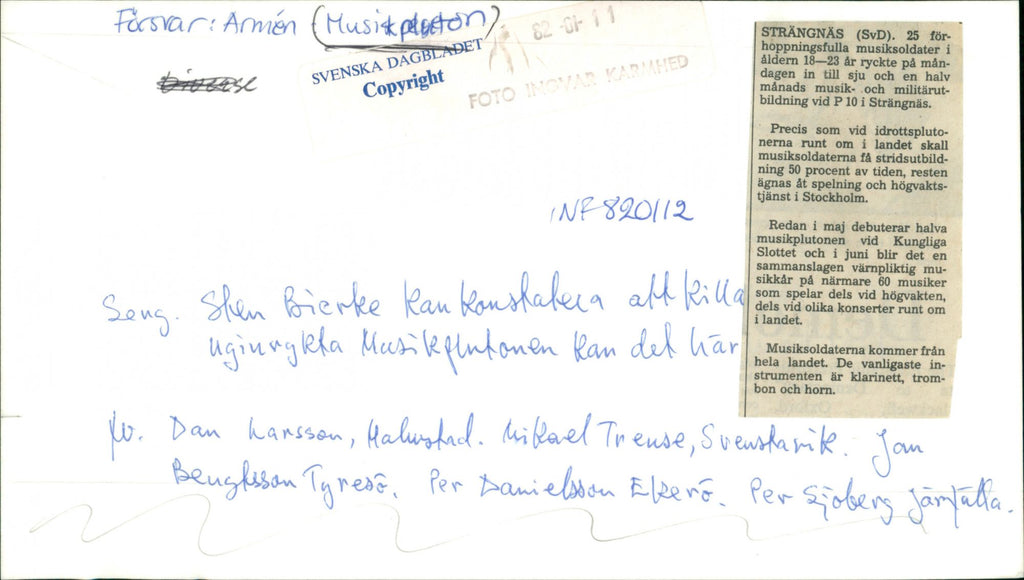 Försvar: Armén (Musikpluton)
Diverse
SVENSKA DAGBLADET
Copyright
82 -01- 11
FOTO INGVAR KARMHED
INF 820112
Serg. Sten Bierke kan konstatera att killa
nyinryckta Musikplutonen kan det här
fv. Dan Larsson, Halmstad. Mikael Trense, Svenstavik. Jan
Bengtsson Tyresö. Per Danielsson Ekerö. Per Sjöberg Järfälla.
STRÄNGNÄS (SvD). 25 för-
hoppningsfulla musiksoldater i
åldern 18—23 år ryckte på mån-
dagen in till sju och en halv
månads musik- och militärut-
bildning vid P 10 i Strängnäs.
Precis som vid idrottspluto-
nerna runt om i landet skall
musiksoldaterna få stridsutbild-
ning 50 procent av tiden, resten
ägnas åt spelning och högvakts-
tjänst i Stockholm.
Redan i maj debuterar halva
musikplutonen vid Kungliga
Slottet och i juni blir det en
sammanslagen värnpliktig mu-
sikkår på närmare 60 musiker
som spelar dels vid högvakten,
dels vid olika konserter runt om
i landet.
Musiksoldaterna kommer från
hela landet. De vanligaste in-
strumenten är klarinett, trom-
bon och horn.